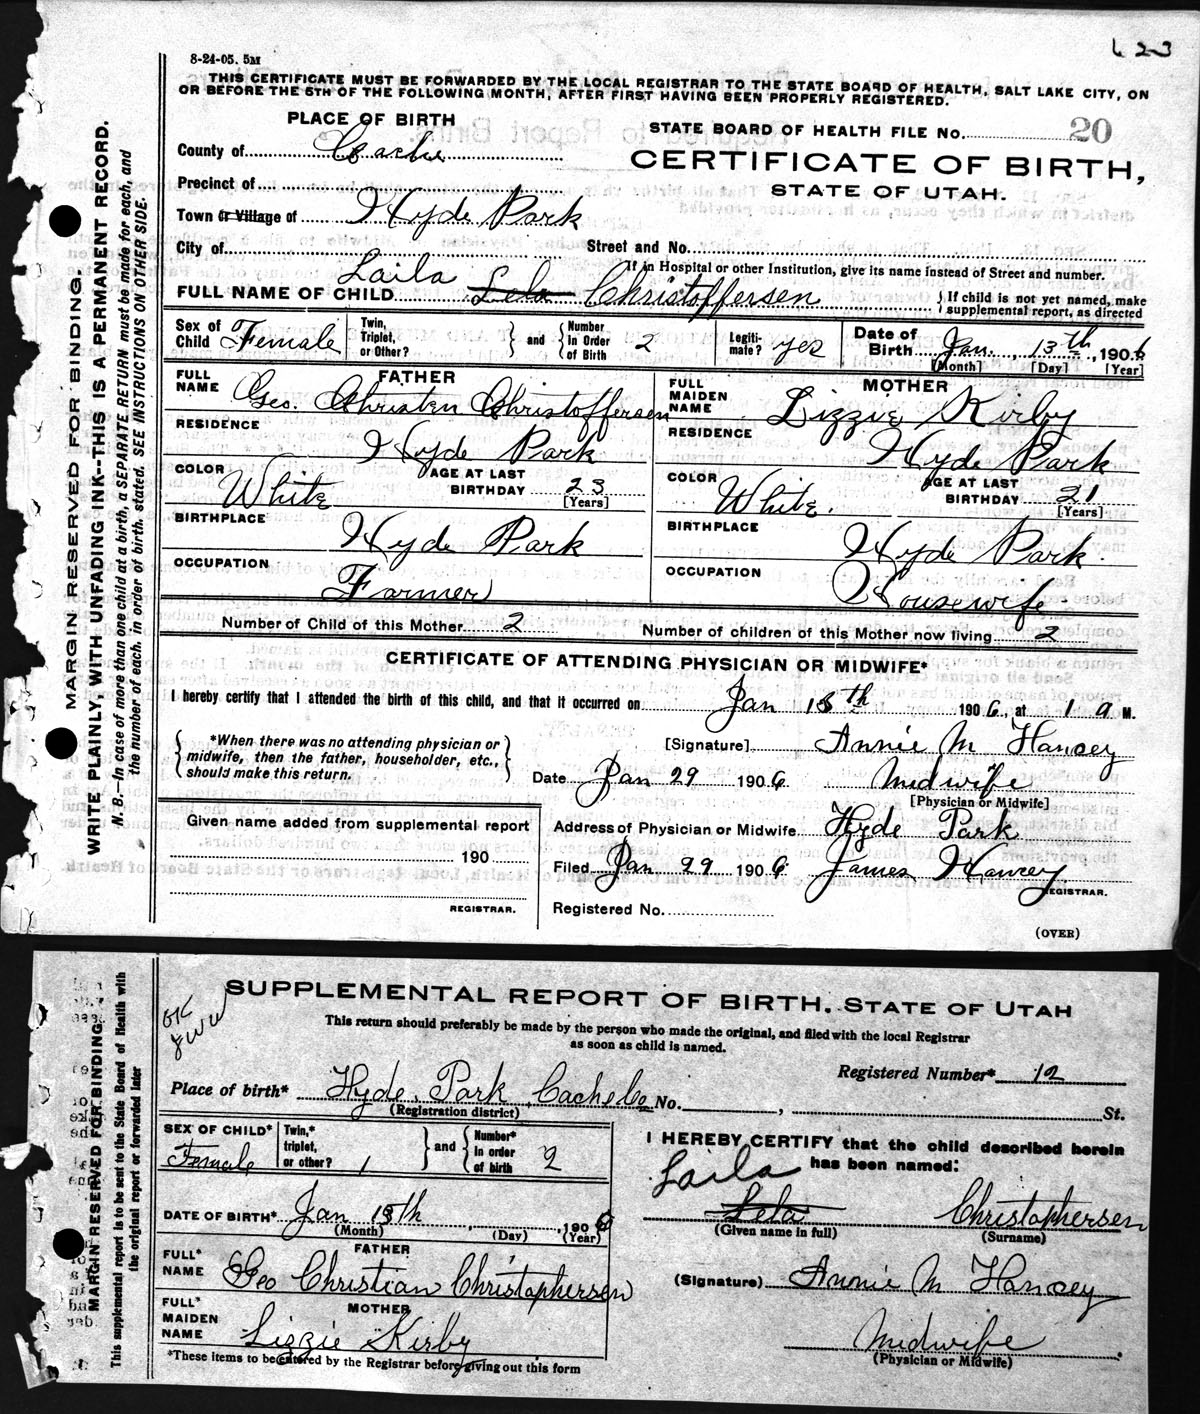 623
8-24-05. 5M
THIS CERTIFICATE MUST BE FORWARDED BY THE LOCAL REGISTRAR TO THE STATE BOARD OF HEALTH, SALT LAKE CITY, ON
OR BEFORE THE 5TH OF THE FOLLOWING MONTH, AFTER FIRST HAVING BEEN PROPERLY REGISTERED.
PLACE OF BIRTH
STATE BOARD OF HEALTH FILE No. 20
County of Cache
CERTIFICATE OF BIRTH,
STATE OF UTAH.
Precinct of
Town or Village of Hyde Park
City of
Street and No.
If in Hospital or other Institution, give its name instead of Street and number.
FULL NAME OF CHILD Laila Lela Christoffersen
If child is not yet named, make
supplemental report, as directed
Sex of Child Female
Twin, Triplet, or Other?
and
Number in Order of Birth 2
Legiti-mate? yes
Date of Birth Jan. 13th, 1906
[Month] [Day] [Year]
FATHER
FULL NAME Geo. Christen Christoffersen
RESIDENCE Hyde Park
COLOR White
AGE AT LAST BIRTHDAY 23 [Years]
BIRTHPLACE Hyde Park
OCCUPATION Farmer
MOTHER
FULL MAIDEN NAME Lizzie Kirby
RESIDENCE Hyde Park
COLOR White.
AGE AT LAST BIRTHDAY 21 [Years]
BIRTHPLACE Hyde Park.
OCCUPATION Housewife
Number of Child of this Mother 2
Number of children of this Mother now living 2
CERTIFICATE OF ATTENDING PHYSICIAN OR MIDWIFE*
I hereby certify that I attended the birth of this child, and that it occurred on Jan 13th 1906, at 1 a M.
*When there was no attending physician or
midwife, then the father, householder, etc.,
should make this return.
[Signature] Annie M Hancey
Date Jan 29 1906 Midwife
[Physician or Midwife]
Given name added from supplemental report
190
REGISTRAR.
Address of Physician or Midwife Hyde Park
Filed Jan 29 1906 James Hancey
REGISTRAR.
Registered No.
(OVER)
MARGIN RESERVED FOR BINDING.
WRITE PLAINLY, WITH UNFADING INK--THIS IS A PERMANENT RECORD.
N. B.—In case of more than one child at a birth, a SEPARATE RETURN must be made for each, and
the number of each, in order of birth, stated. SEE INSTRUCTIONS ON OTHER SIDE.
SUPPLEMENTAL REPORT OF BIRTH, STATE OF UTAH
This return should preferably be made by the person who made the original, and filed with the local Registrar
as soon as child is named.
Registered Number* 12
Place of birth* Hyde Park Cache Co No. , St.
(Registration district)
SEX OF CHILD* Female
Twin,* triplet, or other? 1
and
Number* in order of birth 2
I HEREBY CERTIFY that the child described herein
has been named:
Laila
Lela Christophersen
(Given name in full) (Surname)
DATE OF BIRTH* Jan 13th, 1906
(Month) (Day) (Year)
FATHER
FULL* NAME Geo Christian Christophersen
MOTHER
FULL* MAIDEN NAME Lizzie Kirby
(Signature) Annie M Hancey
Midwife
(Physician or Midwife)
*These items to be entered by the Registrar before giving out this form
MARGIN RESERVED FOR BINDING
This supplemental report is to be sent to the State Board of Health with
the original report or forwarded later